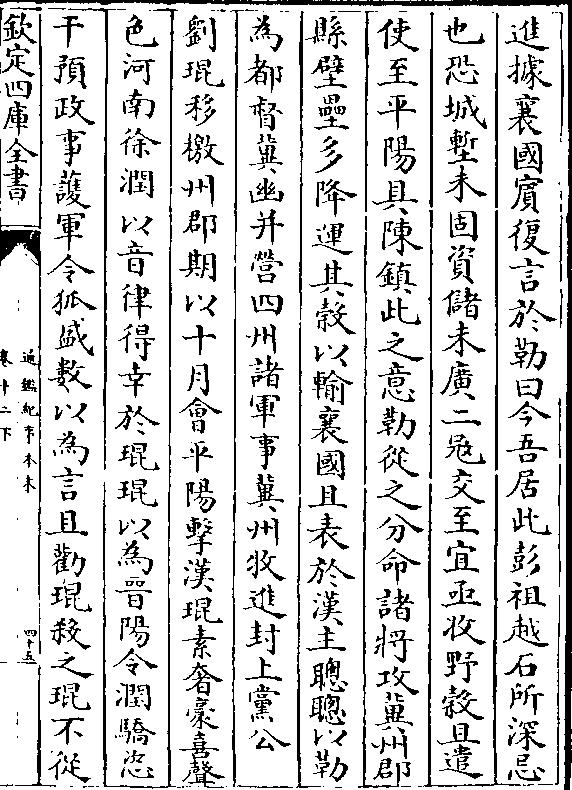 進據襄國賔復言於勒曰今吾居此彭祖越石所深忌
也恐城塹未固資儲未廣二冦交至宜亟收野糓且遣
使至平陽具陳鎮此之意勒從之分命諸將攻冀州郡
縣壁壘多降運其糓以輸襄國且表於漢主聰聰以勒
為都督冀幽并營四州諸軍事冀州牧進封上黨公
劉琨移檄州郡期以十月會平陽擊漢琨素奢豪喜聲
色河南徐潤以音律得幸於琨琨以為晉陽令潤驕恣
干預政事護軍令狐盛數以為言且勸琨殺之琨不從
欽定四庫全書
通鑑紀事本末
卷十二下
四十五